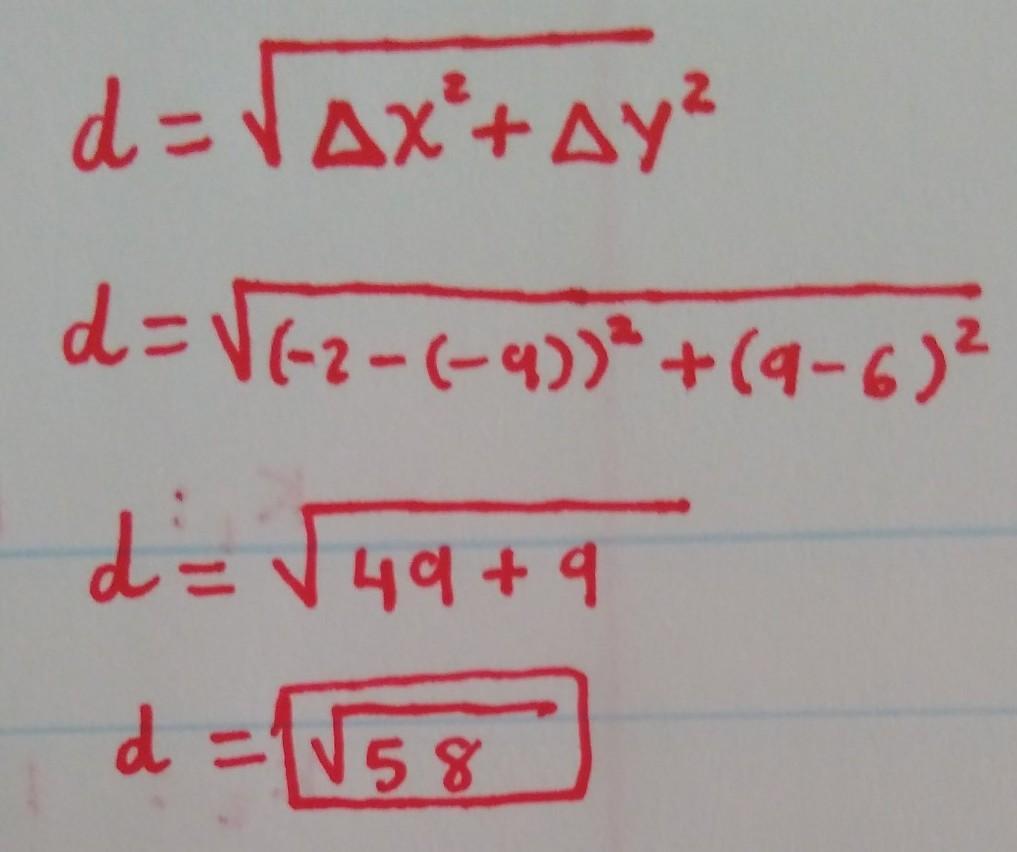 d = √Δx² + Δy²
d = √(-2 - (-9))² + (9 - 6)²
d = √49 + 9
d = √58